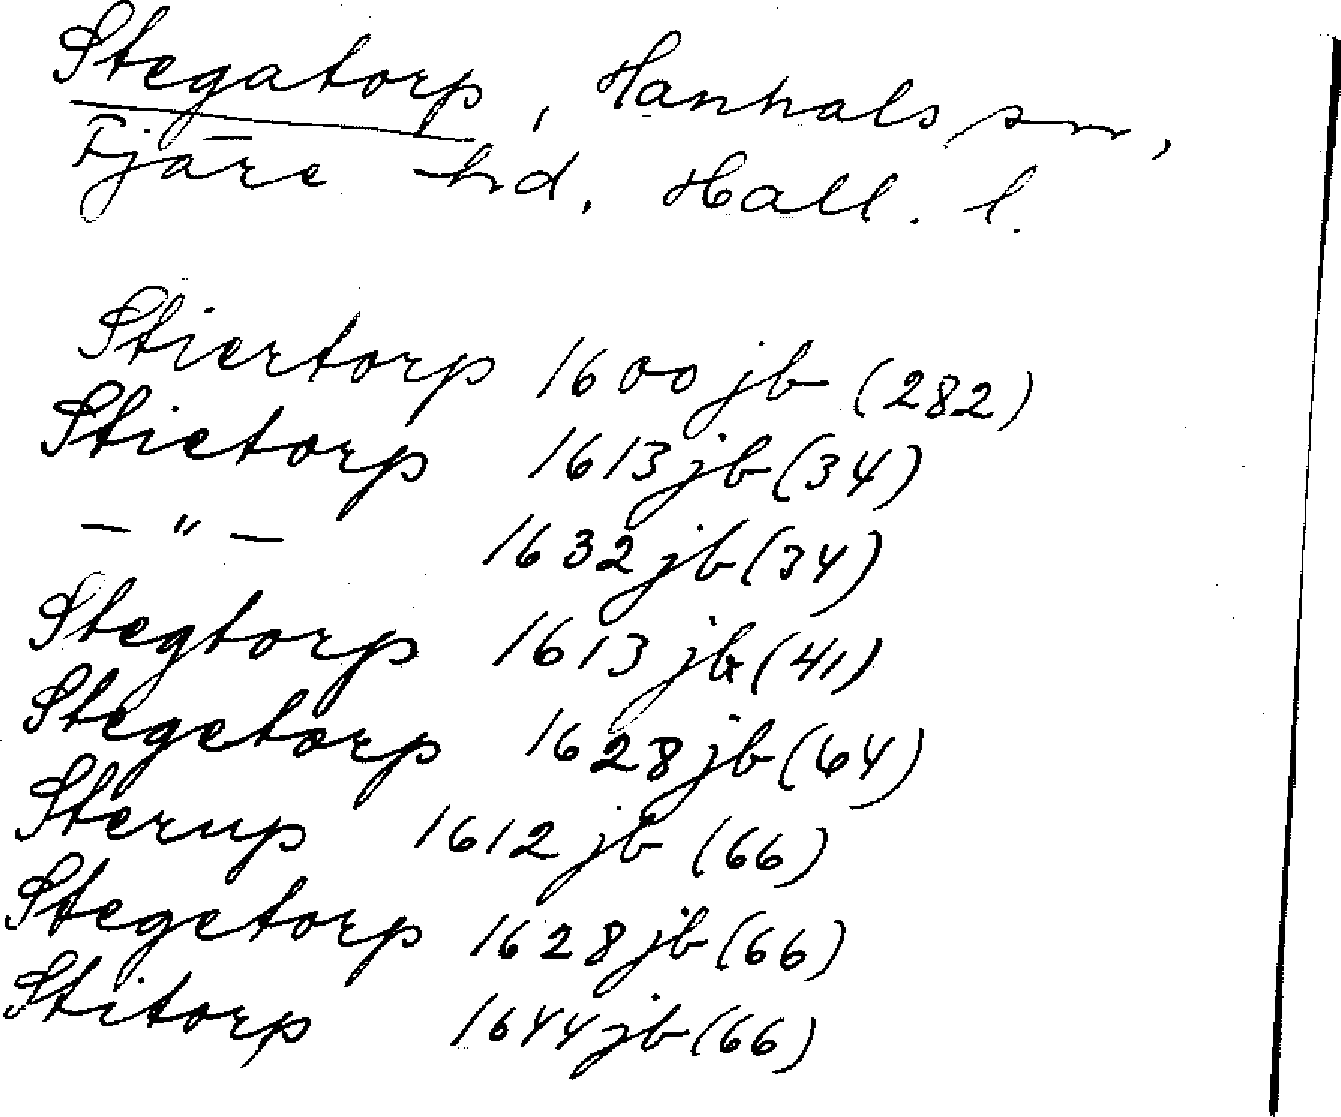 Stegatorp, Hanhals sn,
Fjäre hd, Hall. l.
Stiertorp 1600 jb (282)
Stietorp 1613 jb (34)
— " — 1632 jb (34)
Stegtorp 1613 jb (41)
Stegetorp 1628 jb (64)
Sterup 1612 jb (66)
Stegetorp 1628 jb (66)
Stitorp 1644 jb (66)